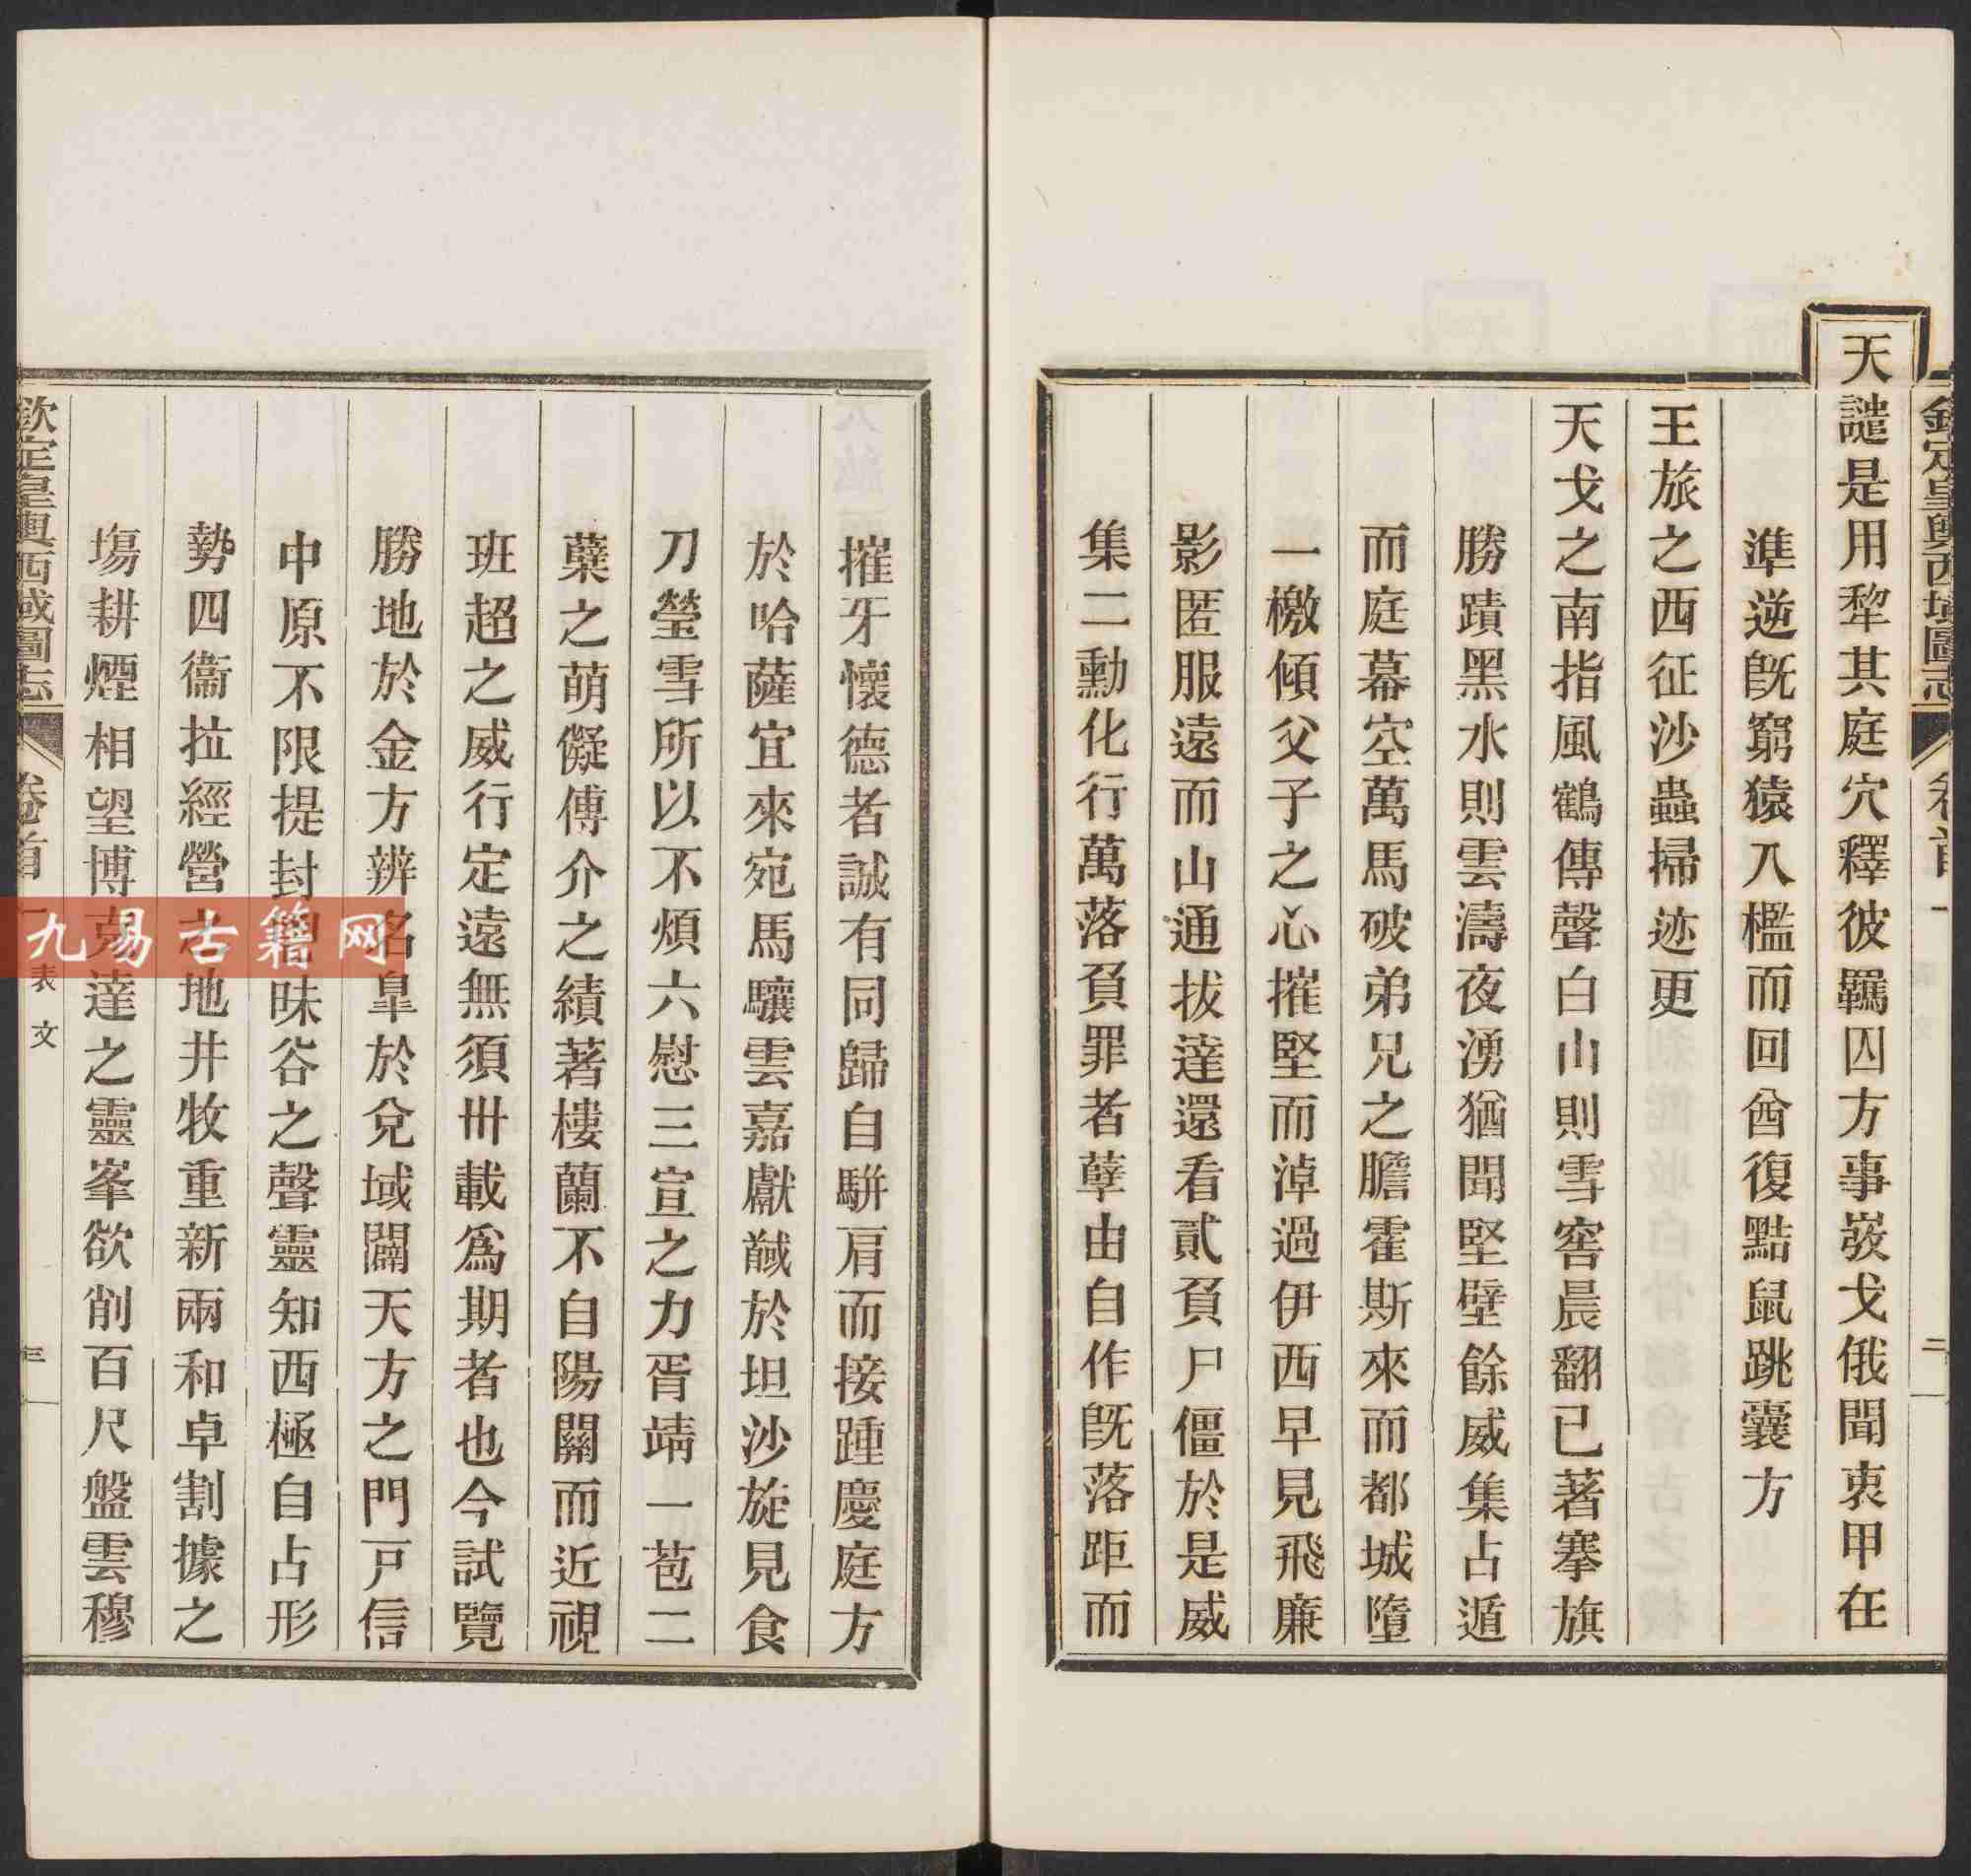 天譴是用犂其庭穴釋彼羈囚方事㪟戈俄聞衷甲在
準逆旣窮猿入檻而回酋復黠鼠跳囊方
王旅之西征沙蟲掃迹更
天戈之南指風鶴傳聲白山則雪窖晨翻已著搴旗
勝蹟黑水則雲濤夜湧猶聞堅壁餘威集占遁
而庭幕空萬馬破弟兄之膽霍斯來而都城墮
一檄傾父子之心摧堅而淖過伊西早見飛廉
影匿服遠而山通拔達還看貳負尸僵於是威
集二勳化行萬落負罪者孽由自作旣落距而
欽定皇輿西域圖志
卷首一
二
摧牙懷德者誠有同歸自駢肩而接踵慶庭方
於哈薩宜來宛馬驤雲嘉獻馘於坦沙旋見食
刀瑩雪所以不煩六慰三宣之力胥靖一苞二
蘗之萌儗傅介之績著樓蘭不自陽關而近視
班超之威行定遠無須卅載爲期者也今試覽
勝地於金方辨名臯於兌域闢天方之門戸信
中原不限提封昧谷之聲靈知西極自占形
勢四衞拉經營之地井牧重新兩和卓割據之
塲耕煙相望博克達之靈峯欲削百尺盤雲穆
欽定皇輿西域圖志
卷首一
表文
三
九易古籍网